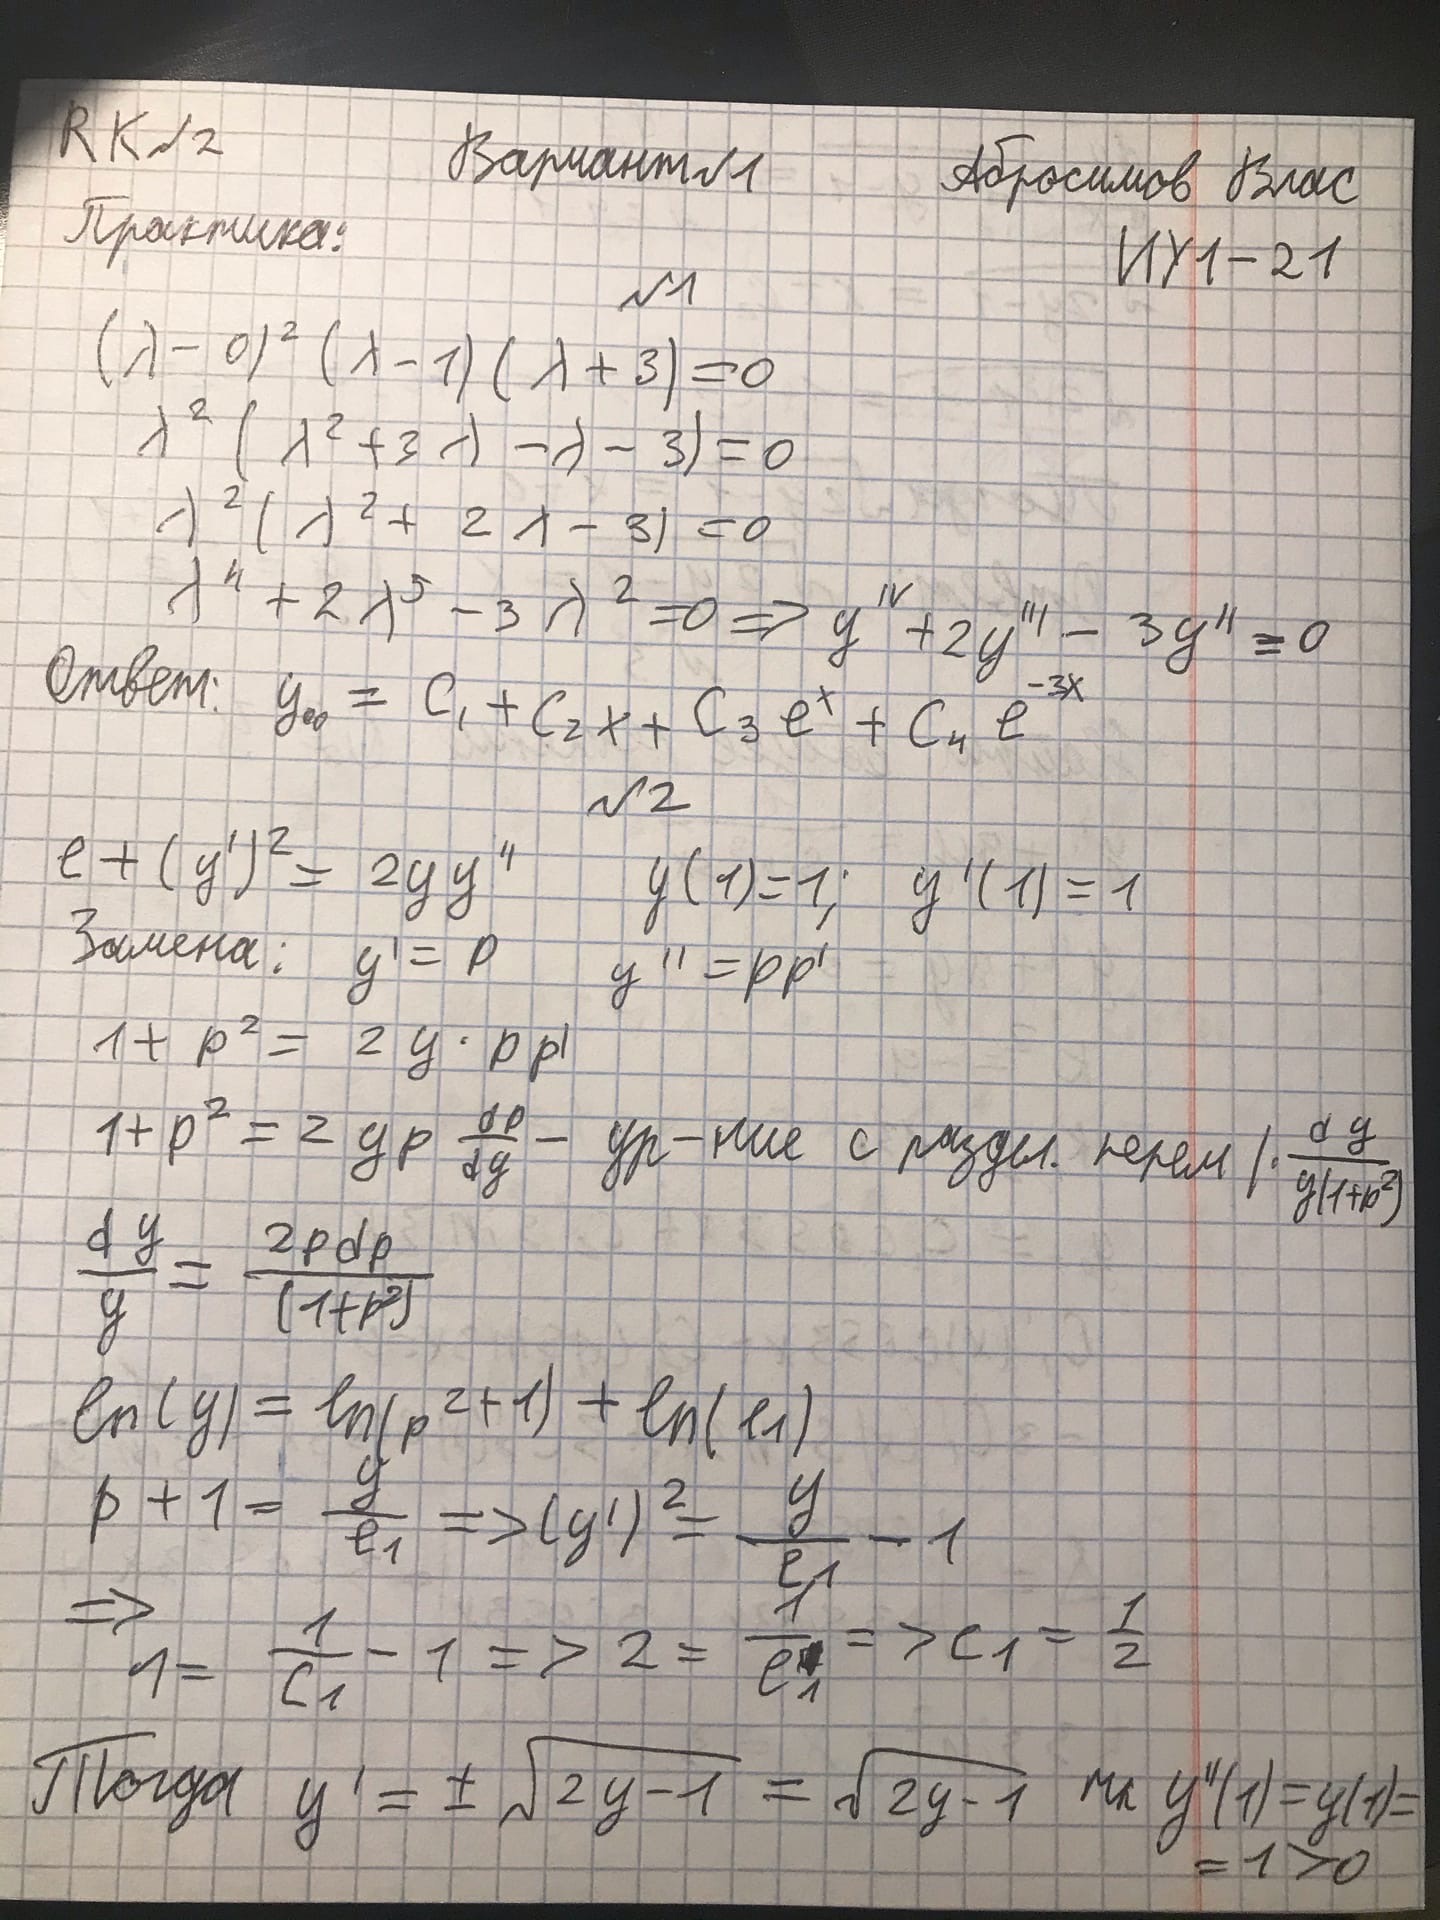 RK№2 Вариант№1 Абросимов Влас
Практика: ИУ1-21
№1
(λ-0)²(λ-1)(λ+3)=0
λ²(λ²+3λ-λ-3)=0
λ²(λ²+2λ-3)=0
λ⁴+2λ⁵-3λ²=0=>y^IV+2y'''-3y''=0
Ответ: y₀₀=C₁+C₂x+C₃eˣ+C₄e⁻³ˣ
№2
e+(y')²=2yy'' y(1)=1; y'(1)=1
Замена: y'=p y''=pp'
1+p²=2y·pp'
1+p²=2yp dp/dy - ур-ние с раздел. перем |· dy/y(1+p²)
dy/y = 2pdp/(1+p²)
ln(y)=ln(p²+1)+ln(e1)
p+1= y/e1 =>(y')²= y/e1 -1
=>
1= 1/C1 -1 =>2= 1/e1 =>c1= 1/2
Тогда y'=±√2y-1 = √2y-1 тк y''(1)=y(1)=
=1>0